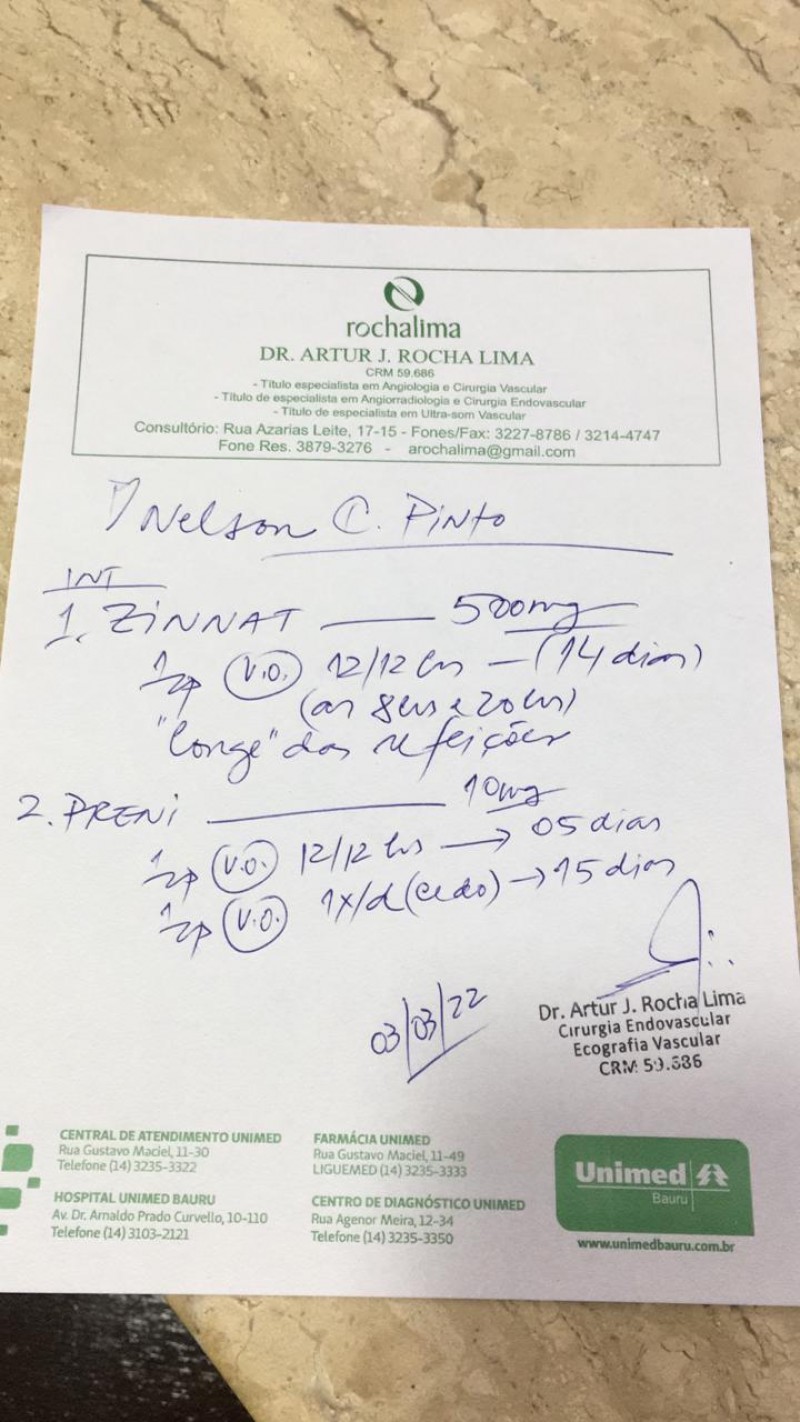 rochalima
DR. ARTUR J. ROCHA LIMA
CRM 59.686
- Título especialista em Angiologia e Cirurgia Vascular
- Título de especialista em Angiorradiologia e Cirurgia Endovascular
- Título de especialista em Ultra-som Vascular
Consultório: Rua Azarias Leite, 17-15 - Fones/Fax: 3227-8786 / 3214-4747
Fone Res. 3879-3276 - arochalima@gmail.com
P/ Nelson C. Pinto
INT
1. ZINNAT 500mg
V.O. 12/12 hs - (14 dias)
(as 8hs e 20hs)
"longe" das refeições
2. PRENI 10mg
V.O. 12/12 hs → 05 dias
V.O. 1x/d (cedo) → 15 dias
03/03/22
Dr. Artur J. Rocha Lima
Cirurgia Endovascular
Ecografia Vascular
CRM 59.686
CENTRAL DE ATENDIMENTO UNIMED
Rua Gustavo Maciel, 11-30
Telefone (14) 3235-3322
HOSPITAL UNIMED BAURU
Av. Dr. Arnaldo Prado Curvello, 10-110
Telefone (14) 3103-2121
FARMÁCIA UNIMED
Rua Gustavo Maciel, 11-49
LIGUEMED (14) 3235-3333
CENTRO DE DIAGNÓSTICO UNIMED
Rua Agenor Meira, 12-34
Telefone (14) 3235-3350
Unimed
Bauru
www.unimedbauru.com.br